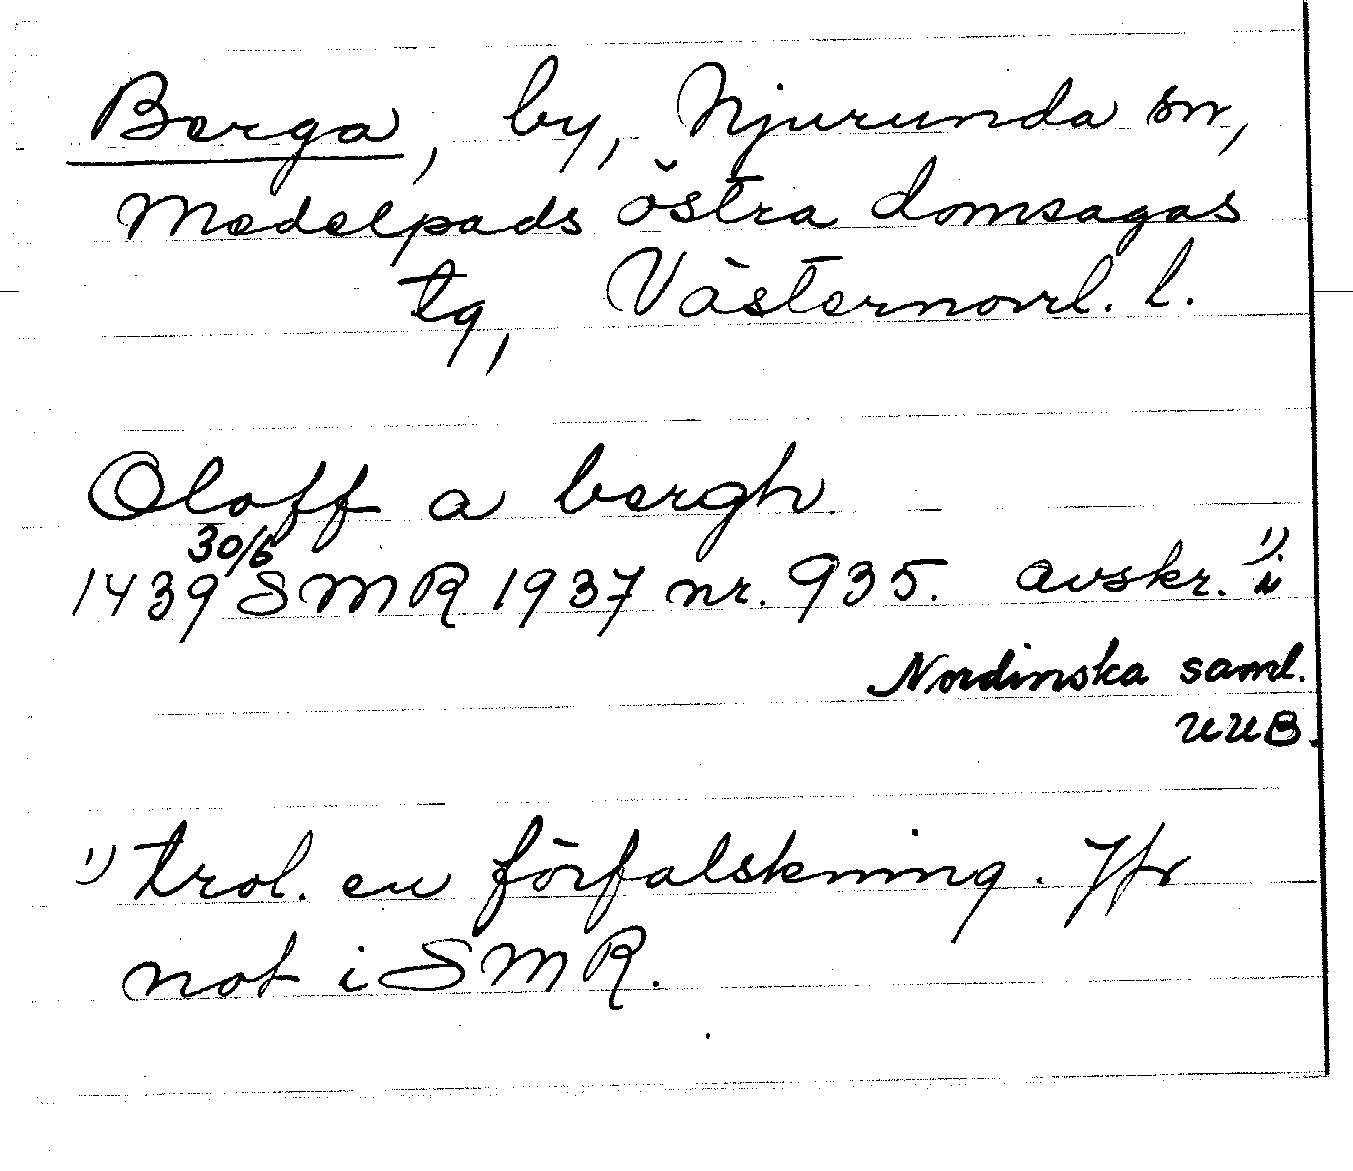 Berga, by, Njurunda sn,
Medelpads östra domsagas
tg, Västernorrl. l.
Oloff a bergh
30/6
1439 SMR 1937 nr. 935. avskr. 1) i
Nordinska saml.
UUB.
1) trol. en förfalskning. Jfr
not i SMR.